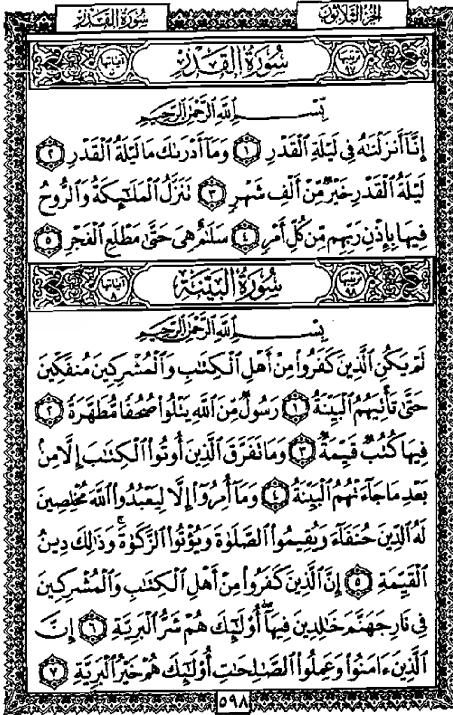 سُورَةُ القَدْرِ الجُزْءُ الثَّلَاثُونَ
سُورَةُ القَدْرِ
بِسْمِ ٱللَّهِ ٱلرَّحْمَٰنِ ٱلرَّحِيمِ
إِنَّآ أَنزَلْنَٰهُ فِى لَيْلَةِ ٱلْقَدْرِ ١ وَمَآ أَدْرَىٰكَ مَا لَيْلَةُ ٱلْقَدْرِ ٢
لَيْلَةُ ٱلْقَدْرِ خَيْرٌ مِّنْ أَلْفِ شَهْرٍ ٣ تَنَزَّلُ ٱلْمَلَٰٓئِكَةُ وَٱلرُّوحُ
فِيهَا بِإِذْنِ رَبِّهِم مِّن كُلِّ أَمْرٍ ٤ سَلَٰمٌ هِىَ حَتَّىٰ مَطْلَعِ ٱلْفَجْرِ ٥
سُورَةُ البَيِّنَةِ
بِسْمِ ٱللَّهِ ٱلرَّحْمَٰنِ ٱلرَّحِيمِ
لَمْ يَكُنِ ٱلَّذِينَ كَفَرُوا۟ مِنْ أَهْلِ ٱلْكِتَٰبِ وَٱلْمُشْرِكِينَ مُنفَكِّينَ
حَتَّىٰ تَأْتِيَهُمُ ٱلْبَيِّنَةُ ١ رَسُولٌ مِّنَ ٱللَّهِ يَتْلُوا۟ صُحُفًا مُّطَهَّرَةً ٢
فِيهَا كُتُبٌ قَيِّمَةٌ ٣ وَمَا تَفَرَّقَ ٱلَّذِينَ أُوتُوا۟ ٱلْكِتَٰبَ إِلَّا مِنۢ
بَعْدِ مَا جَآءَتْهُمُ ٱلْبَيِّنَةُ ٤ وَمَآ أُمِرُوٓا۟ إِلَّا لِيَعْبُدُوا۟ ٱللَّهَ مُخْلِصِينَ
لَهُ ٱلدِّينَ حُنَفَآءَ وَيُقِيمُوا۟ ٱلصَّلَوٰةَ وَيُؤْتُوا۟ ٱلزَّكَوٰةَ ۚ وَذَٰلِكَ دِينُ
ٱلْقَيِّمَةِ ٥ إِنَّ ٱلَّذِينَ كَفَرُوا۟ مِنْ أَهْلِ ٱلْكِتَٰبِ وَٱلْمُشْرِكِينَ
فِى نَارِ جَهَنَّمَ خَٰلِدِينَ فِيهَآ ۚ أُو۟لَٰٓئِكَ هُمْ شَرُّ ٱلْبَرِيَّةِ ٦ إِنَّ
ٱلَّذِينَ ءَامَنُوا۟ وَعَمِلُوا۟ ٱلصَّٰلِحَٰتِ أُو۟لَٰٓئِكَ هُمْ خَيْرُ ٱلْبَرِيَّةِ ٧
٥٩٨